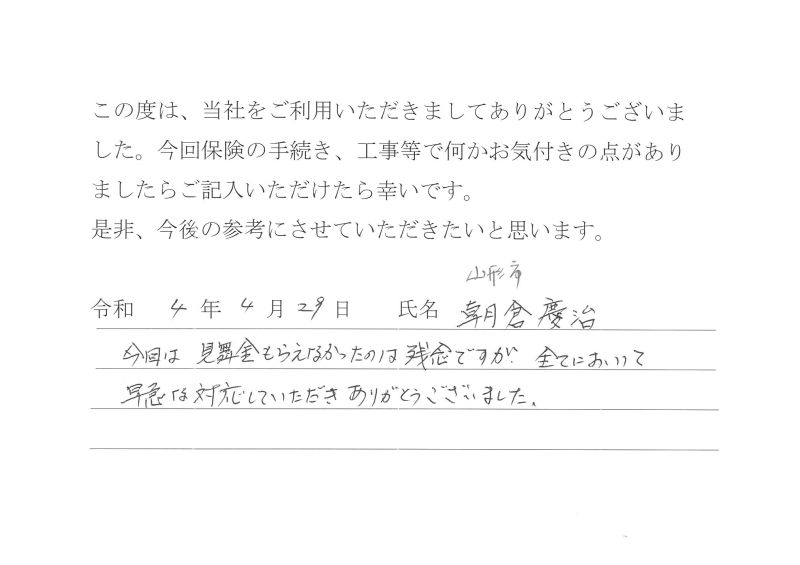 この度は、当社をご利用いただきましてありがとうございま
した。今回保険の手続き、工事等で何かお気付きの点があり
ましたらご記入いただけたら幸いです。
是非、今後の参考にさせていただきたいと思います。
山形市
令和 4 年 4 月 29 日 氏名 朝倉慶治
今回は 見舞金もらえなかったのは残念ですが 全てにおいて
早急な対応していただき ありがとうございました。